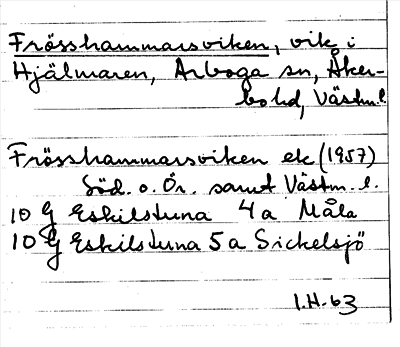 Frösshammarsviken, vik i
Hjälmaren, Arboga sn, Åker-
bo hd, Västm.l.
Frösshammarsviken ek (1957)
Söd. o. Ör. samt Västm. l.
10 G Eskilstuna 4a Måla
10 G Eskilstuna 5a Sickelsjö
I.H. 63